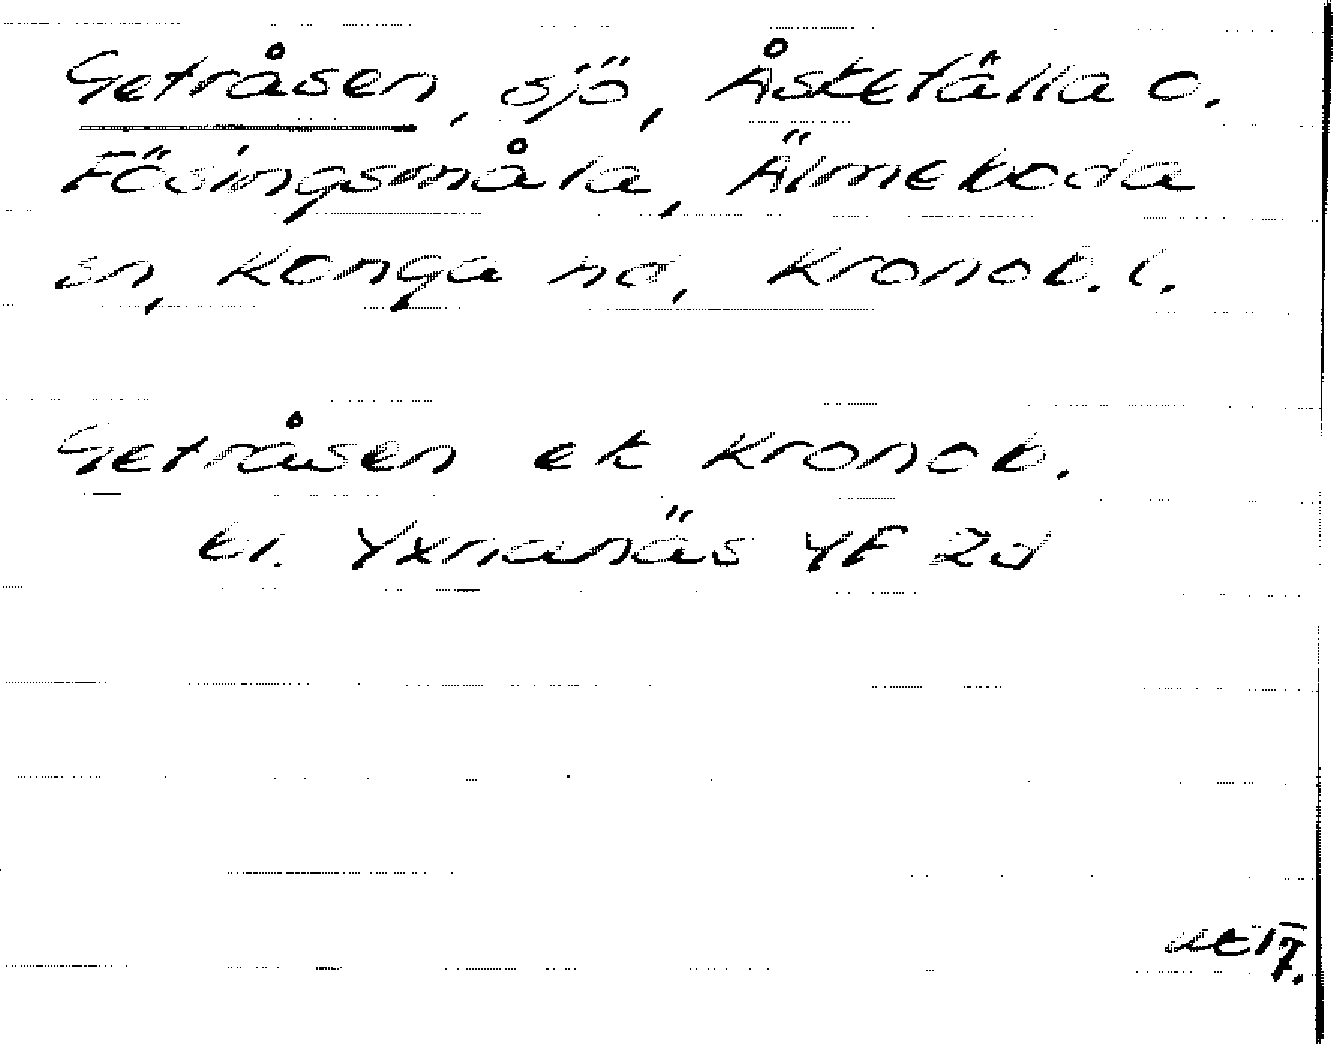 Getråsen, sjö, Åskefälla o.
Födingsmåla, Älmeboda
sn, Konga hd, Kronob. l.
Getråsen ek Kronob.
bl. Yxnanäs 4F 2d